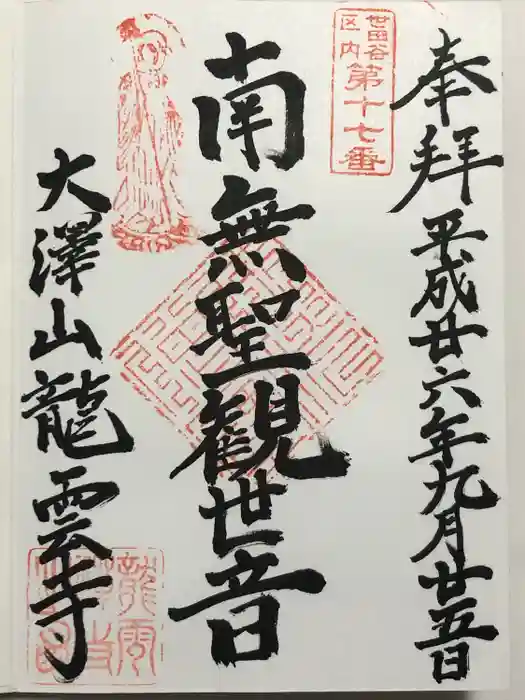 奉拝
平成廿六年九月廿五日
世田谷
区内
第十七番
南無聖観世音
大澤山龍雲寺